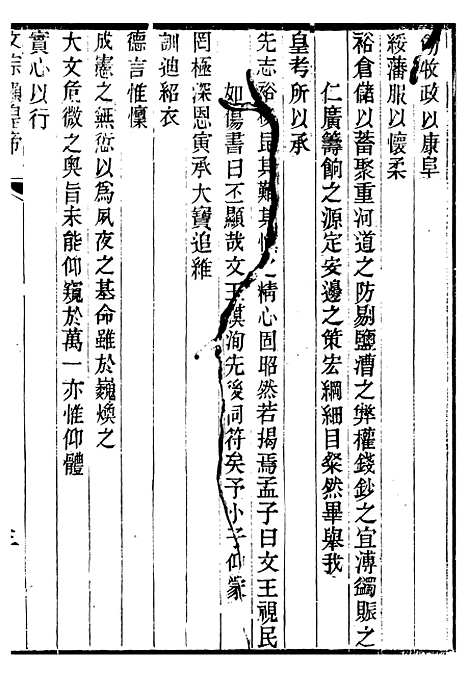 牧政以康阜
綏藩服以懷柔
裕倉儲以蓄聚重河道之防剔鹽漕之弊權錢鈔之宜溥蠲賑之
仁廣籌餉之源定安邊之策宏綱細目粲然畢舉我
皇考所以承
先志裕 民其難其慎之精心固昭然若揭焉孟子曰文王視民
如傷書曰丕顯哉文王謨洵先後同符矣予小子仰蒙
罔極深恩寅承大寶追維
訓迪紹衣
德言惟懍
成憲之無愆以為夙夜之基命雖於巍煥之
大文危微之奧旨未能仰窺於萬一亦惟仰體
實心以行
文宗顯皇帝
三